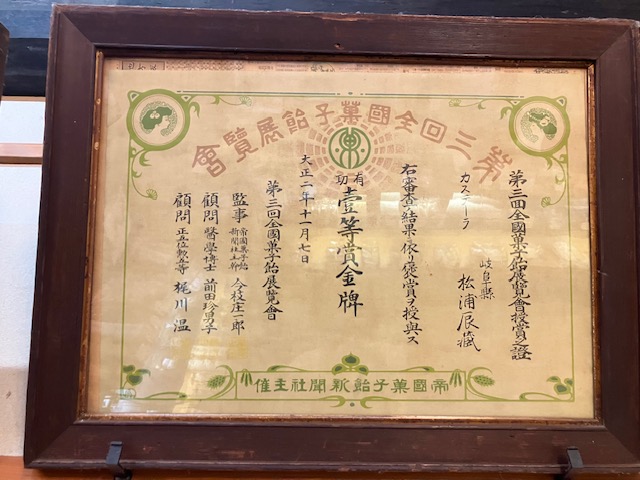 第三回全國菓子飴展覽會
第三回全國菓子飴展覽會授賞之證
カステーラ
岐阜縣
松浦辰藏
右審査ノ結果ニ依リ褒賞ヲ授與ス
有功
壹等賞金牌
大正二年十一月七日
第三回全國菓子飴展覽會
監事 帝國菓子飴新聞社主幹 今枝庄一郎
顧問 醫學博士 前田珍男子
顧問 正五位勲等 梶川温
帝國菓子飴新聞社主催